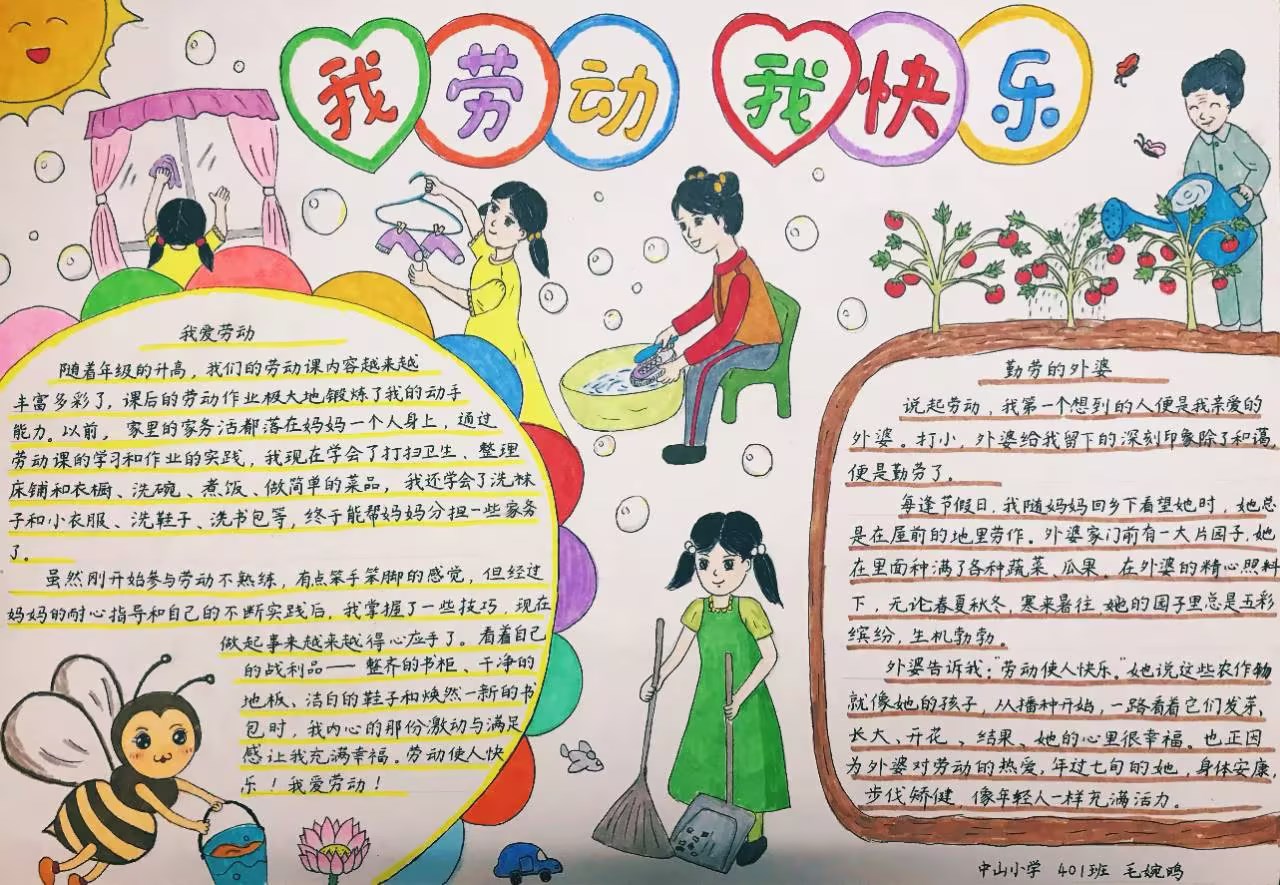 我劳动 我快乐
我爱劳动
随着年级的升高，我们的劳动课内容越来越
丰富多彩了，课后的劳动作业极大地锻炼了我的动手
能力。以前，家里的家务活都落在妈妈一个人身上，通过
劳动课的学习和作业的实践，我现在学会了打扫卫生、整理
床铺和衣橱、洗碗、煮饭、做简单的菜品，我还学会了洗袜
子和小衣服、洗鞋子、洗书包等，终于能帮妈妈分担一些家务
了。
虽然刚开始参与劳动不熟练，有点笨手笨脚的感觉，但经过
妈妈的耐心指导和自己的不断实践后，我掌握了一些技巧，现在
做起事来越来越得心应手了。看着自己
的战利品——整齐的书柜、干净的
地板、洁白的鞋子和焕然一新的书
包时，我内心的那份激动与满足
感让我充满幸福。劳动使人快
乐！我爱劳动！
勤劳的外婆
说起劳动，我第一个想到的人便是我亲爱的
外婆。打小，外婆给我留下的深刻印象除了和蔼
便是勤劳了。
每逢节假日，我随妈妈回乡下看望她时，她总
是在屋前的地里劳作。外婆家门前有一大片园子，她
在里面种满了各种蔬菜、瓜果。在外婆的精心照料
下，无论春夏秋冬，寒来暑往她的园子里总是五彩
缤纷，生机勃勃。
外婆告诉我：“劳动使人快乐。”她说这些农作物
就像她的孩子，从播种开始，一路看着它们发芽、
长大、开花、结果、她的心里很幸福。也正因
为外婆对劳动的热爱，年过七旬的她，身体安康，
步伐矫健，像年轻人一样充满活力。
中山小学 401班 毛婉鸣